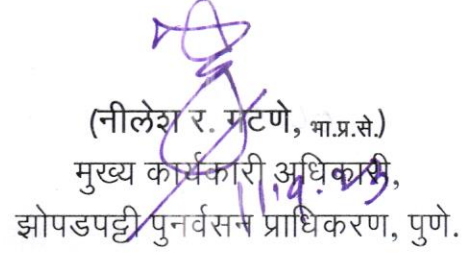 (नीलेश र. गटणे, भा.प्र.से.)
मुख्य कार्यकारी अधिकारी,
झोपडपट्टी पुनर्वसन प्राधिकरण, पुणे.